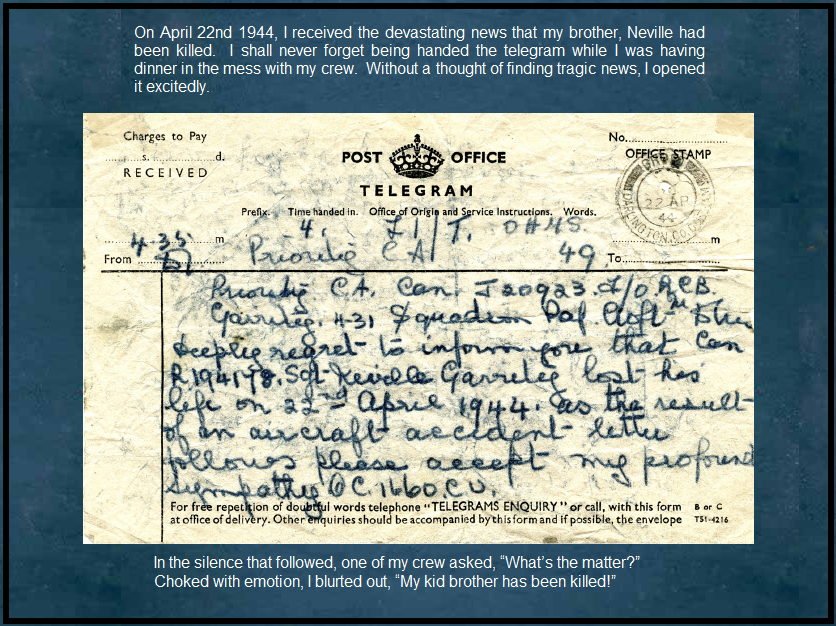 On April 22nd 1944, I received the devastating news that my brother, Neville had
been killed.  I shall never forget being handed the telegram while I was having
dinner in the mess with my crew.  Without a thought of finding tragic news, I opened
it excitedly.
Charges to Pay
s. d.
RECEIVED
POST OFFICE
TELEGRAM
No.
OFFICE STAMP
22 AP
44
Prefix. Time handed in. Office of Origin and Service Instructions. Words.
4.35 m
From
Priority CA 49
To
m
Priority C.A. Can. J20923. F/O. A.C.B.
Garritty. 431 Squadron Raf. Croft
deeply regret to inform you that Can
R194178. Sgt Neville Garritty lost his
life on 22nd April 1944. as the result
of an aircraft accident letter
follows please accept my profound
sympathy O C. 1660. C.U.
For free repetition of doubtful words telephone "TELEGRAMS ENQUIRY" or call, with this form
at office of delivery. Other enquiries should be accompanied by this form and if possible, the envelope
B or C
T51-4216
In the silence that followed, one of my crew asked, “What’s the matter?”
Choked with emotion, I blurted out, “My kid brother has been killed!”